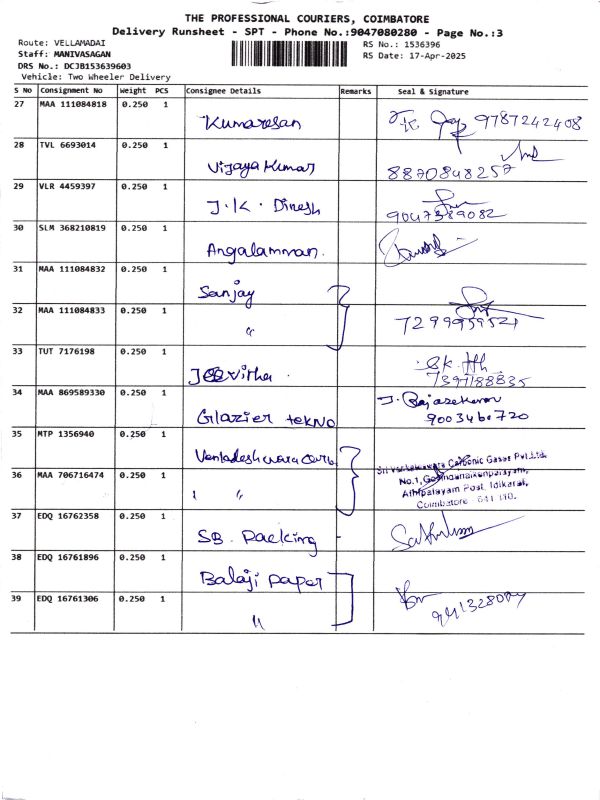 THE PROFESSIONAL COURIERS, COIMBATORE
Delivery Runsheet - SPT - Phone No.:9047080280 - Page No.:3
Route: VELLAMADAI
RS No.: 1536396
Staff: MANIVASAGAN
RS Date: 17-Apr-2025
DRS No.: DCJB153639603
Vehicle: Two Wheeler Delivery
S No Consignment No Weight PCS Consignee Details Remarks Seal & Signature
27 MAA 111084818 0.250 1
Kumaresan 9787242408
28 TVL 6693014 0.250 1
Vijaya Kumar 8870848257
29 VLR 4459397 0.250 1
J.K. Dinesh 9047389082
30 SLM 368210819 0.250 1
Angalamman.
31 MAA 111084832 0.250 1
Sanjay
32 MAA 111084833 0.250 1
" 7299959521
33 TUT 7176198 0.250 1
7397188835
34 MAA 869589330 0.250 1
J. Rajasekaran
Glazier tekno 9003460720
35 MTP 1356940 0.250 1
Sri Venkateswara Carbonic Gases Pvt.Ltd.
36 MAA 706716474 0.250 1
No.1, Govindanaikenpalayam,
Athipalayam Post, Idikarai,
" Coimbatore - 641 110.
37 EDQ 16762358 0.250 1
SB. Packing -
38 EDQ 16761896 0.250 1
Balaji paper
39 EDQ 16761306 0.250 1
"